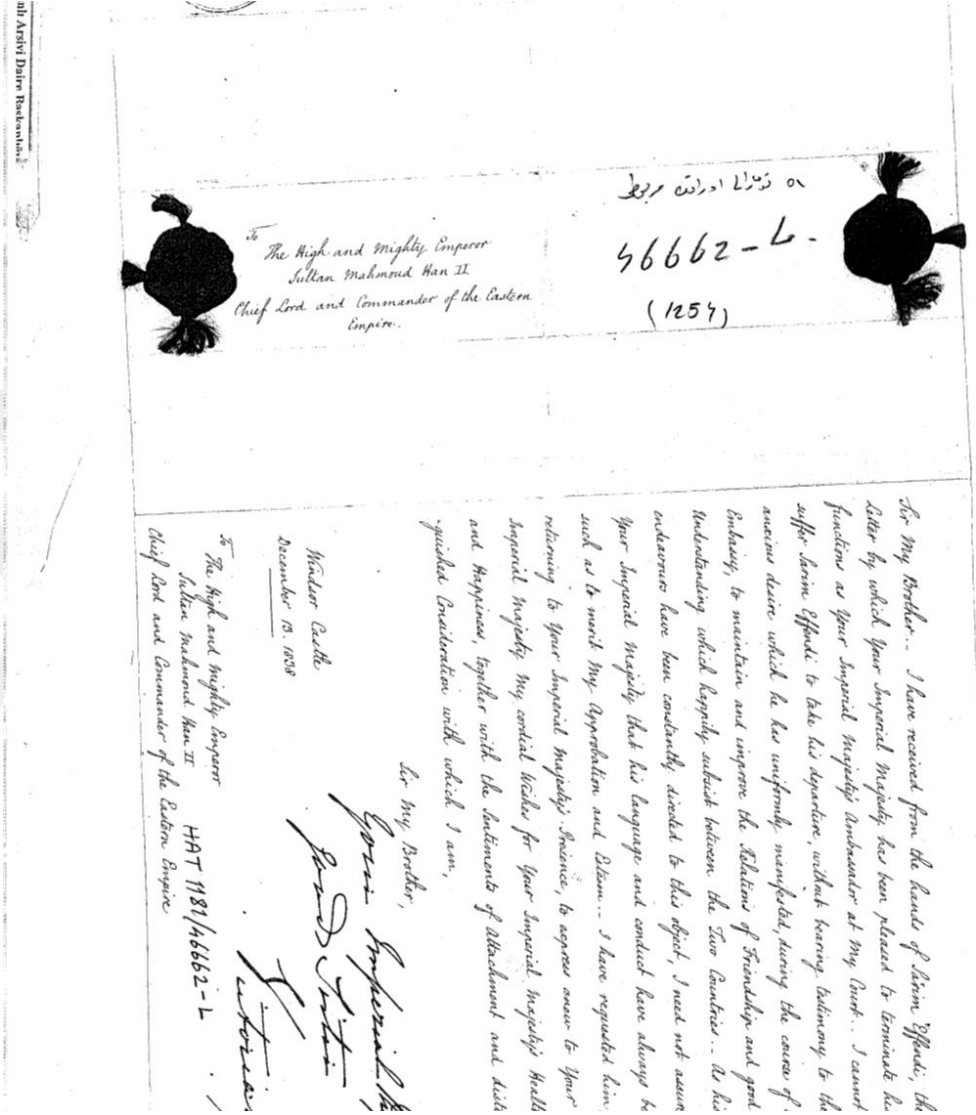 To
The High and Mighty Emperor
Sultan Mahmoud Han II
Chief Lord and Commander of the Eastern
Empire.
46662-L.
(1254)
Sir My Brother.. I have received from the hands of Sarim Effendi, the
Letter by which Your Imperial Majesty has been pleased to terminate his
functions as Your Imperial Majesty's Ambassador at My Court.. I cannot
suffer Sarim Effendi to take his departure, without bearing testimony to the
anxious desire which he has uniformly manifested, during the course of
Embassy, to maintain and improve the Relations of Friendship and good
Understanding which happily subsist between the Two Countries.. As his
endeavours have been constantly directed to this object, I need not assure
Your Imperial Majesty that his language and conduct have always be
such as to merit My Approbation and Esteem.. I have requested him,
returning to Your Imperial Majesty's Presence, to express anew to Your
Imperial Majesty My cordial Wishes for Your Imperial Majesty's Health
and Happiness, together with the Sentiments of Attachment and disti
-guished Consideration with which I am,
Sir My Brother,
Your Imperial
Good Sister
Victoria
Windsor Castle
December 13. 1838
To
The High and Mighty Emperor
Sultan Mahmoud Han II
Chief Lord and Commander of the Eastern Empire
HAT 1181/46662-L